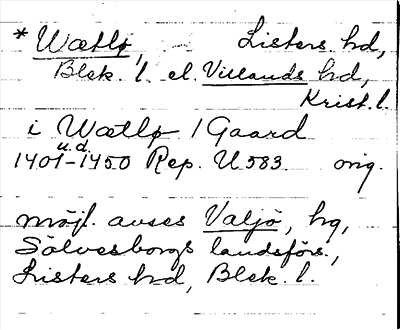 * Wætlø, Listers hd,
Blek. l. el. Villands hd,
Krist. l.
i Wætlø / Gaard
u.d.
1401-1450 Rep. U 583. orig.
möjl. avses Valjö, hg,
Sölvesborgs landsförs.,
Listers hd, Blek. l.